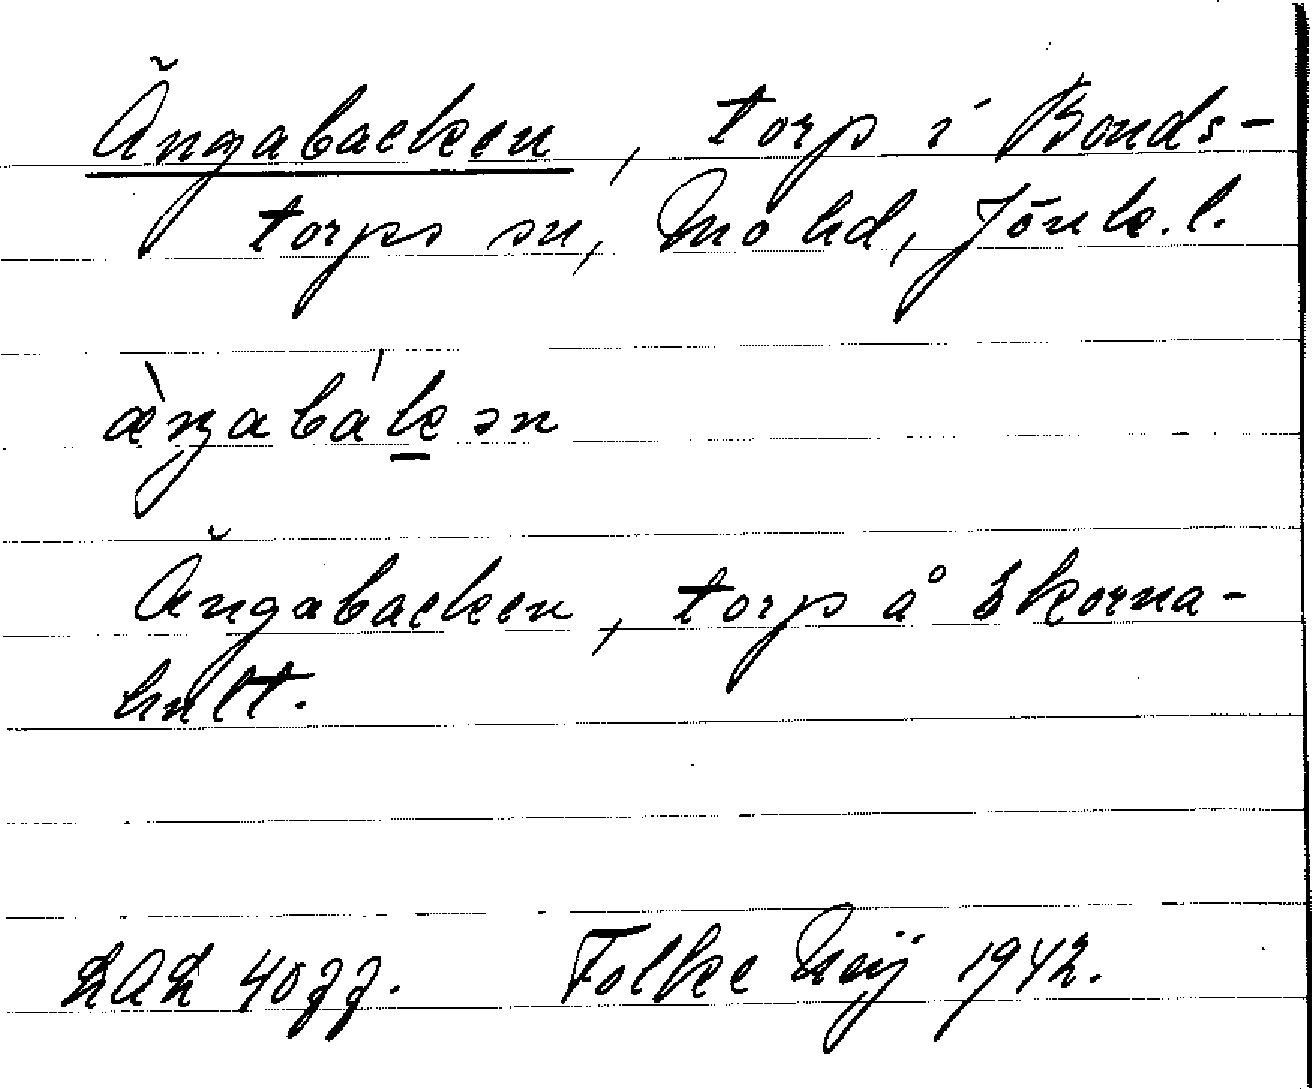 Ängabacken, torp i Bonds-
torps sn, Mo hd, Jönk. l.
æ̀ŋabákən
Ängabacken, torp å Ekorna-
hult.
LAL 4077. Folke Meij 1942.